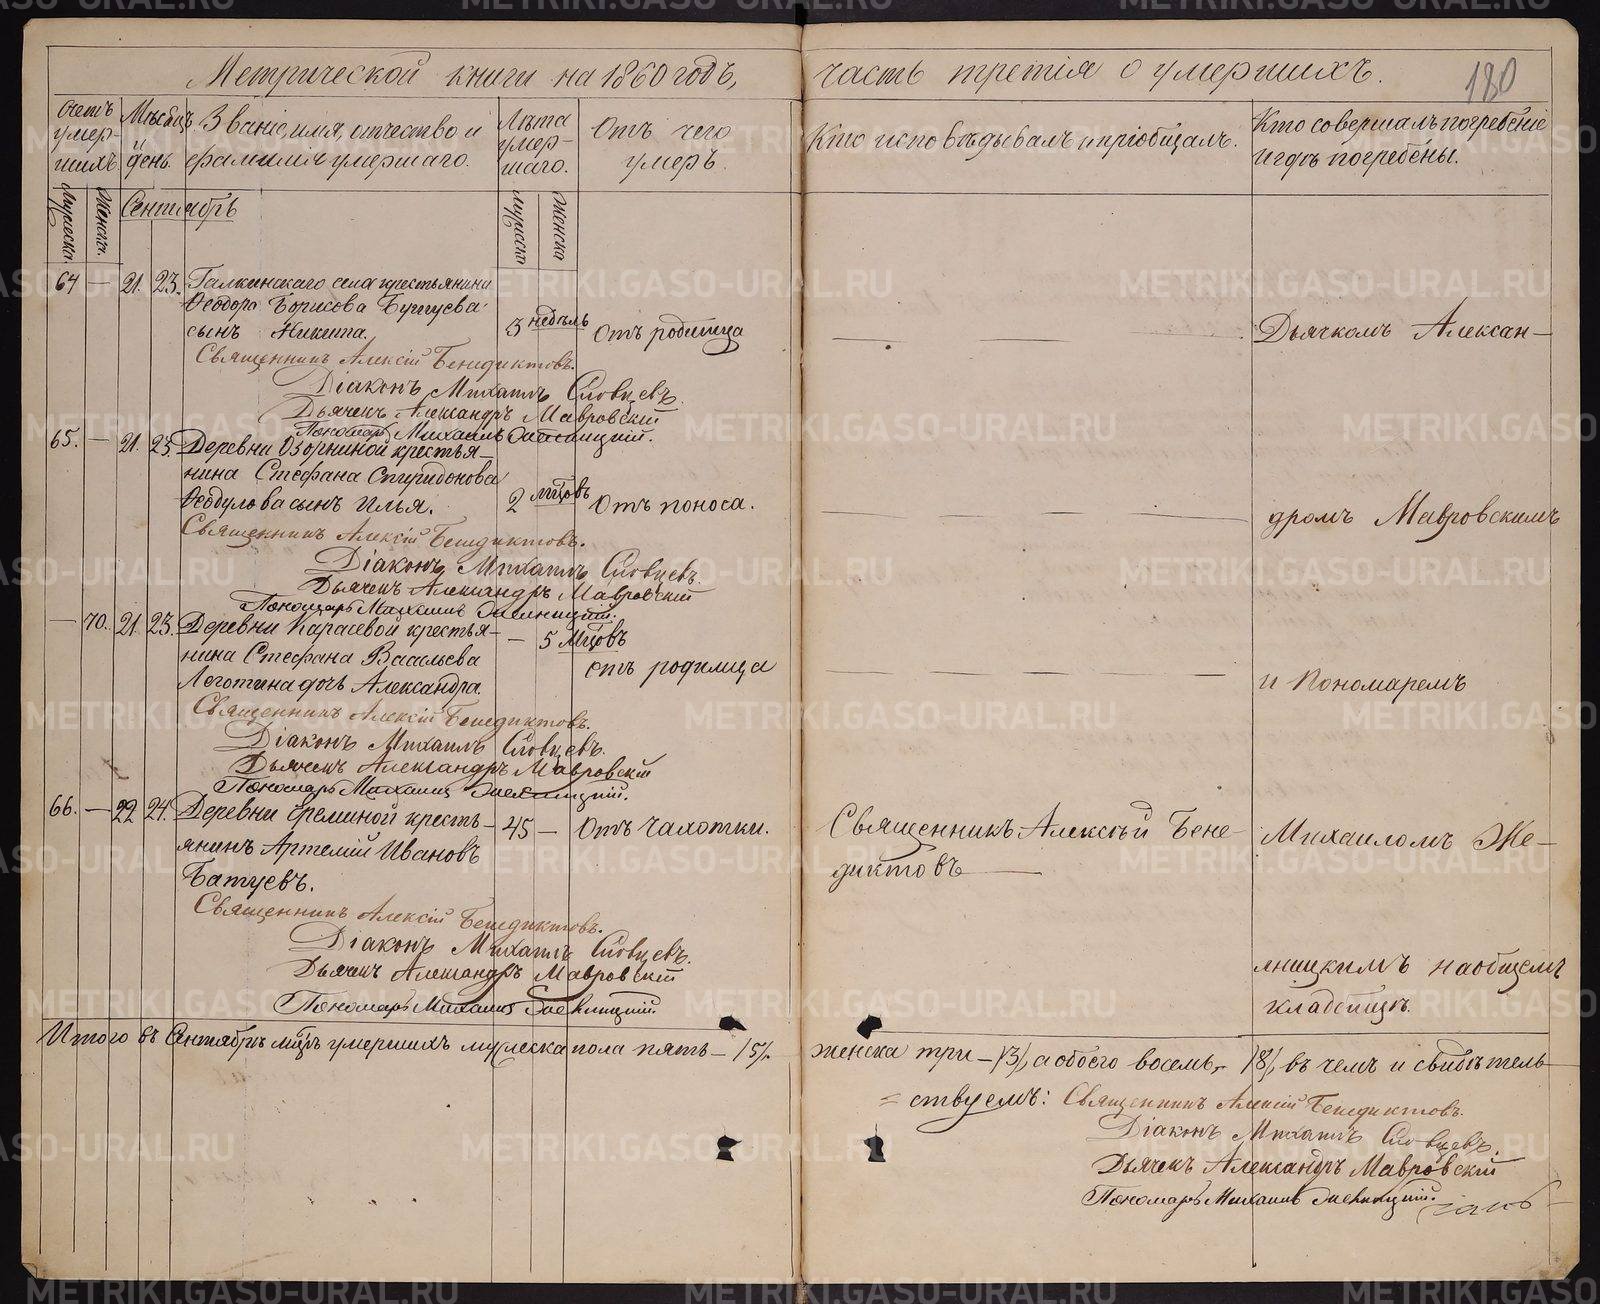 Метрической книги на 1860 годъ, часть третія о умершихъ.
180
Счетъ умер-шихъ.
Мѣсяцъ и день.
Званіе, имя, отчество и фамилія умершаго.
Лѣта умер-шаго.
Отъ чего умеръ.
Кто исповѣдывалъ и пріобщалъ.
Кто совершалъ погребеніе и гдѣ погребены.
Мужеска.
Женска.
Сентябрь
мужеска
женска
64 — 21. 23. Галкинскаго села крестьянина
Ѳеодора Борисова
сынъ Никита. 3 недѣль Отъ родимца
Дьячкомъ Алексан-
Священникъ Алексій Бенедиктовъ.
Діаконъ Михаилъ Словцевъ.
Дьячекъ Александръ Мавровскій
Пономарь Михаилъ
65. — 21. 23. Деревни крестья-
нина Стефана Спиридонова
Ѳеодулова сынъ Илья. 2 мцовъ Отъ поноса.
дромъ Мавровскимъ
Священникъ Алексій Бенедиктовъ.
Діаконъ Михаилъ Словцевъ.
Дьячекъ Александръ Мавровскій
Пономарь Михаилъ
— 70. 21. 23. Деревни Карасевой крестья-
нина Стефана Васильева — 5 мцовъ
отъ родимца
Леготина дочь Александра.
и Пономаремъ
Священникъ Алексій Бенедиктовъ.
Діаконъ Михаилъ Словцевъ.
Дьячекъ Александръ Мавровскій
Пономарь Михаилъ
66. — 22. 24. Деревни Ереминой кресть-
янинъ Артемій Ивановъ
Батуевъ.
45 — Отъ чахотки.
Священникъ Алексѣй Бене-
диктовъ
Михаиломъ Же-
Священникъ Алексій Бенедиктовъ.
Діаконъ Михаилъ Словцевъ.
Дьячекъ Александръ Мавровскій
Пономарь Михаилъ
лницкимъ на общемъ
кладбищѣ.
Итого въ Сентябрѣ мцѣ умершихъ мужеска пола пять — /5/.
женска три — /3/, а обоего восемь — /8/, въ чемъ и свидѣтель-
= ствуемъ: Священникъ Алексій Бенедиктовъ.
Діаконъ Михаилъ Словцевъ.
Дьячекъ Александръ Мавровскій
Пономарь Михаилъ
METRIKI.GASO-URAL.RU